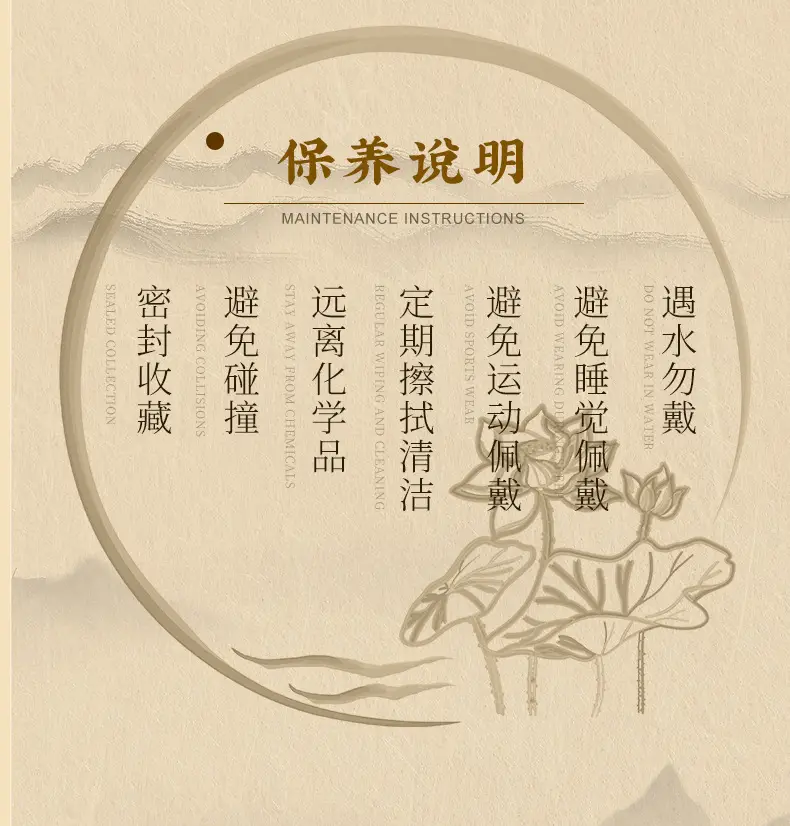 保养说明
MAINTENANCE INSTRUCTIONS
遇水勿戴
DO NOT WEAR IN WATER
避免睡觉佩戴
AVOID WEARING
避免运动佩戴
AVOID SPORTS WEAR
定期擦拭清洁
REGULAR WIPING AND CLEANING
远离化学品
STAY AWAY FROM CHEMICALS
避免碰撞
AVOIDING COLLISIONS
密封收藏
SEALED COLLECTION